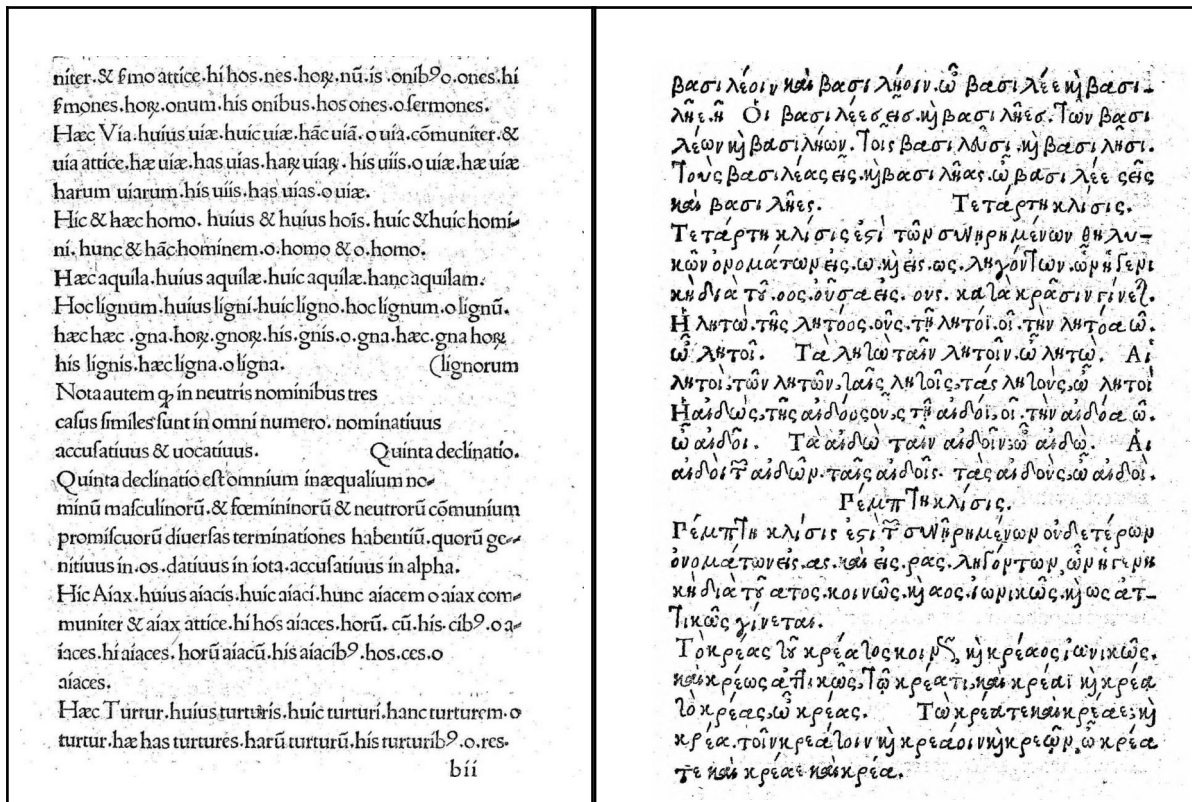 níter.& ſmo attíce.hí hos.nes.hoꝝ.nū.ís.oníbꝰo.ones.hí
ſmones.hoꝝ.onum.hís oníbus.hos ones.o ſermones.
Hæc Vía.huíus uíæ.huíc uíæ.hāc uíā.o uía.cōmuníter.&
uía attíce.hæ uíæ.has uías.haꝝ uíaꝝ.hís uíis.o uíæ.hæ uíæ
harum uíarum.hís uíis.has uías.o uíæ.
Híc & hæc homo. huíus & huíus hoīs. huíc &huíc homí-
ní.hunc & hāc homínem.o.homo & o.homo.
Hæc aquíla.huíus aquílæ.huíc aquílæ.hanc aquílam.
Hoc lígnum.huíus lígní.huíc lígno.hoc lígnum.o lígnū.
hæc hæc .gna.hoꝝ.gnoꝝ.hís.gnís.o.gna.hæc.gna hoꝝ
hís lígnís.hæc lígna.o lígna. (lígnorum
Nota autem ꝙ ín neutrís nomíníbus tres
caſus ſímíles ſunt ín omní numero. nomínatíuus
accuſatíuus & uocatíuus. Quínta declínatío.
Quínta declínatío eſt omníum ínæqualíum no-
mínū maſculínorū.& fœmínínorū & neutrorū cōmuníum
promíſcuorū díuerſas termínatíones habentíū.quorū ge-
nítíuus ín.os.datíuus ín íota.accuſatíuus ín alpha.
Híc Aíax.huíus aíacís.huíc aíací.hunc aíacem o aíax com-
muníter & aíax attíce.hí hos aíaces.horū. cū.hís.cíbꝰ.o a-
íaces.hí aíaces. horū aíacū.hís aíacíbꝰ.hos.ces.o
aíaces.
Hæc Turtur.huíus turturís.huíc turturí.hanc turturem.o
turtur.hæ has turtures.harū turturū.hís turturíbꝰ.o.res.
bíí
βασιλέοιν καὶ βασιλήοιν.ὦ βασιλέε κὴ βασι-
λῆε.ῆ Οἱ βασιλέες εῖς.κὴ βασιλῆες.Τῶν βασι
λέων κὴ βασιλήων.Τοῖς βασιλεῦσι.κὴ βασιλῆσι.
Τοὺς βασιλέας εῖς.κὴ βασιλῆας.ὦ βασιλέε ςεῖς
καὶ βασιλῆες. Τετάρτη κλίσις.
Τετάρτη κλίσις ἐστὶ τῶν συνῃρημένων θηλυ-
κῶν ὀνομάτων εἰς.ω.κὴ εἰς.ως.ληγόντων.ὧν ἡ γενι
κὴ διὰ τοῦ.οος.οὖσα εἰς. ους. κατὰ κρᾶσιν γίνετ.
Ἡ λητὼ.τῆς λητόος.οῦς.τῇ λητόϊ.οῖ.τὴν λητόα ῶ.
ὦ λητοῖ. Τὰ λητὼ ταῖν λητοῖν.ὦ λητὼ. Αἱ
λητοὶ,τῶν λητῶν,ταῖς λητοῖς,τὰς λητοὺς,ὦ λητοὶ
Ἡ αἰδὼς,τῆς αἰδόος οῦς τῇ αἰδόϊ,οῖ.τὴν αἰδόα ῶ.
ὦ αἰδοῖ. Τὰ αἰδὼ ταῖν αἰδοῖν,ὦ αἰδὼ. Αἱ
αἰδοὶ τ̃ αἰδῶν.ταῖς αἰδοῖς. τὰς αἰδοὺς,ὦ αἰδοὶ.
Ρέμπτη κλίσις.
Ρέμπτη κλίσις ἐστὶ τ̃ συνῃρημένων οὐδετέρων
ὀνομάτων εἰς.ας.καὶ εἰς.ρας.ληγόντων,ὧν ἡ γενη
κὴ διὰ τοῦ ατος.κοινῶς.κὴ αος.ἰωνικῶς.κὴ ως ατ-
τικῶς γίνεται.
Τὸ κρέας τοῦ κρέατος κοινῶς, κὴ κρέαος ἰωνικῶς.
καὶ κρέως ἀττικῶς,Τῷ κρέατι,καὶ κρέαϊ κὴ κρέα
τὸ κρέας,ὦ κρέας. Τὼ κρέατε καὶ κρέαε,κὴ
κρέα.τοῖν κρεάτοιν κὴ κρεάοιν κὴ κρεῷν,ὦ κρέα
τε καὶ κρέαε καὶ κρέα.